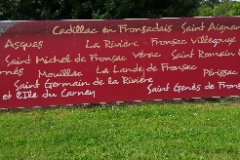 Cadillac en Fronsadais Saint Aignan
Asques La Rivière Fronsac Villegouge
Saint Michel de Fronsac Vérac Saint Romain
Mouillac La Lande de Fronsac Périssac
Saint Germain de la Rivière
et L'Isle du Carney Saint Genès de Frons